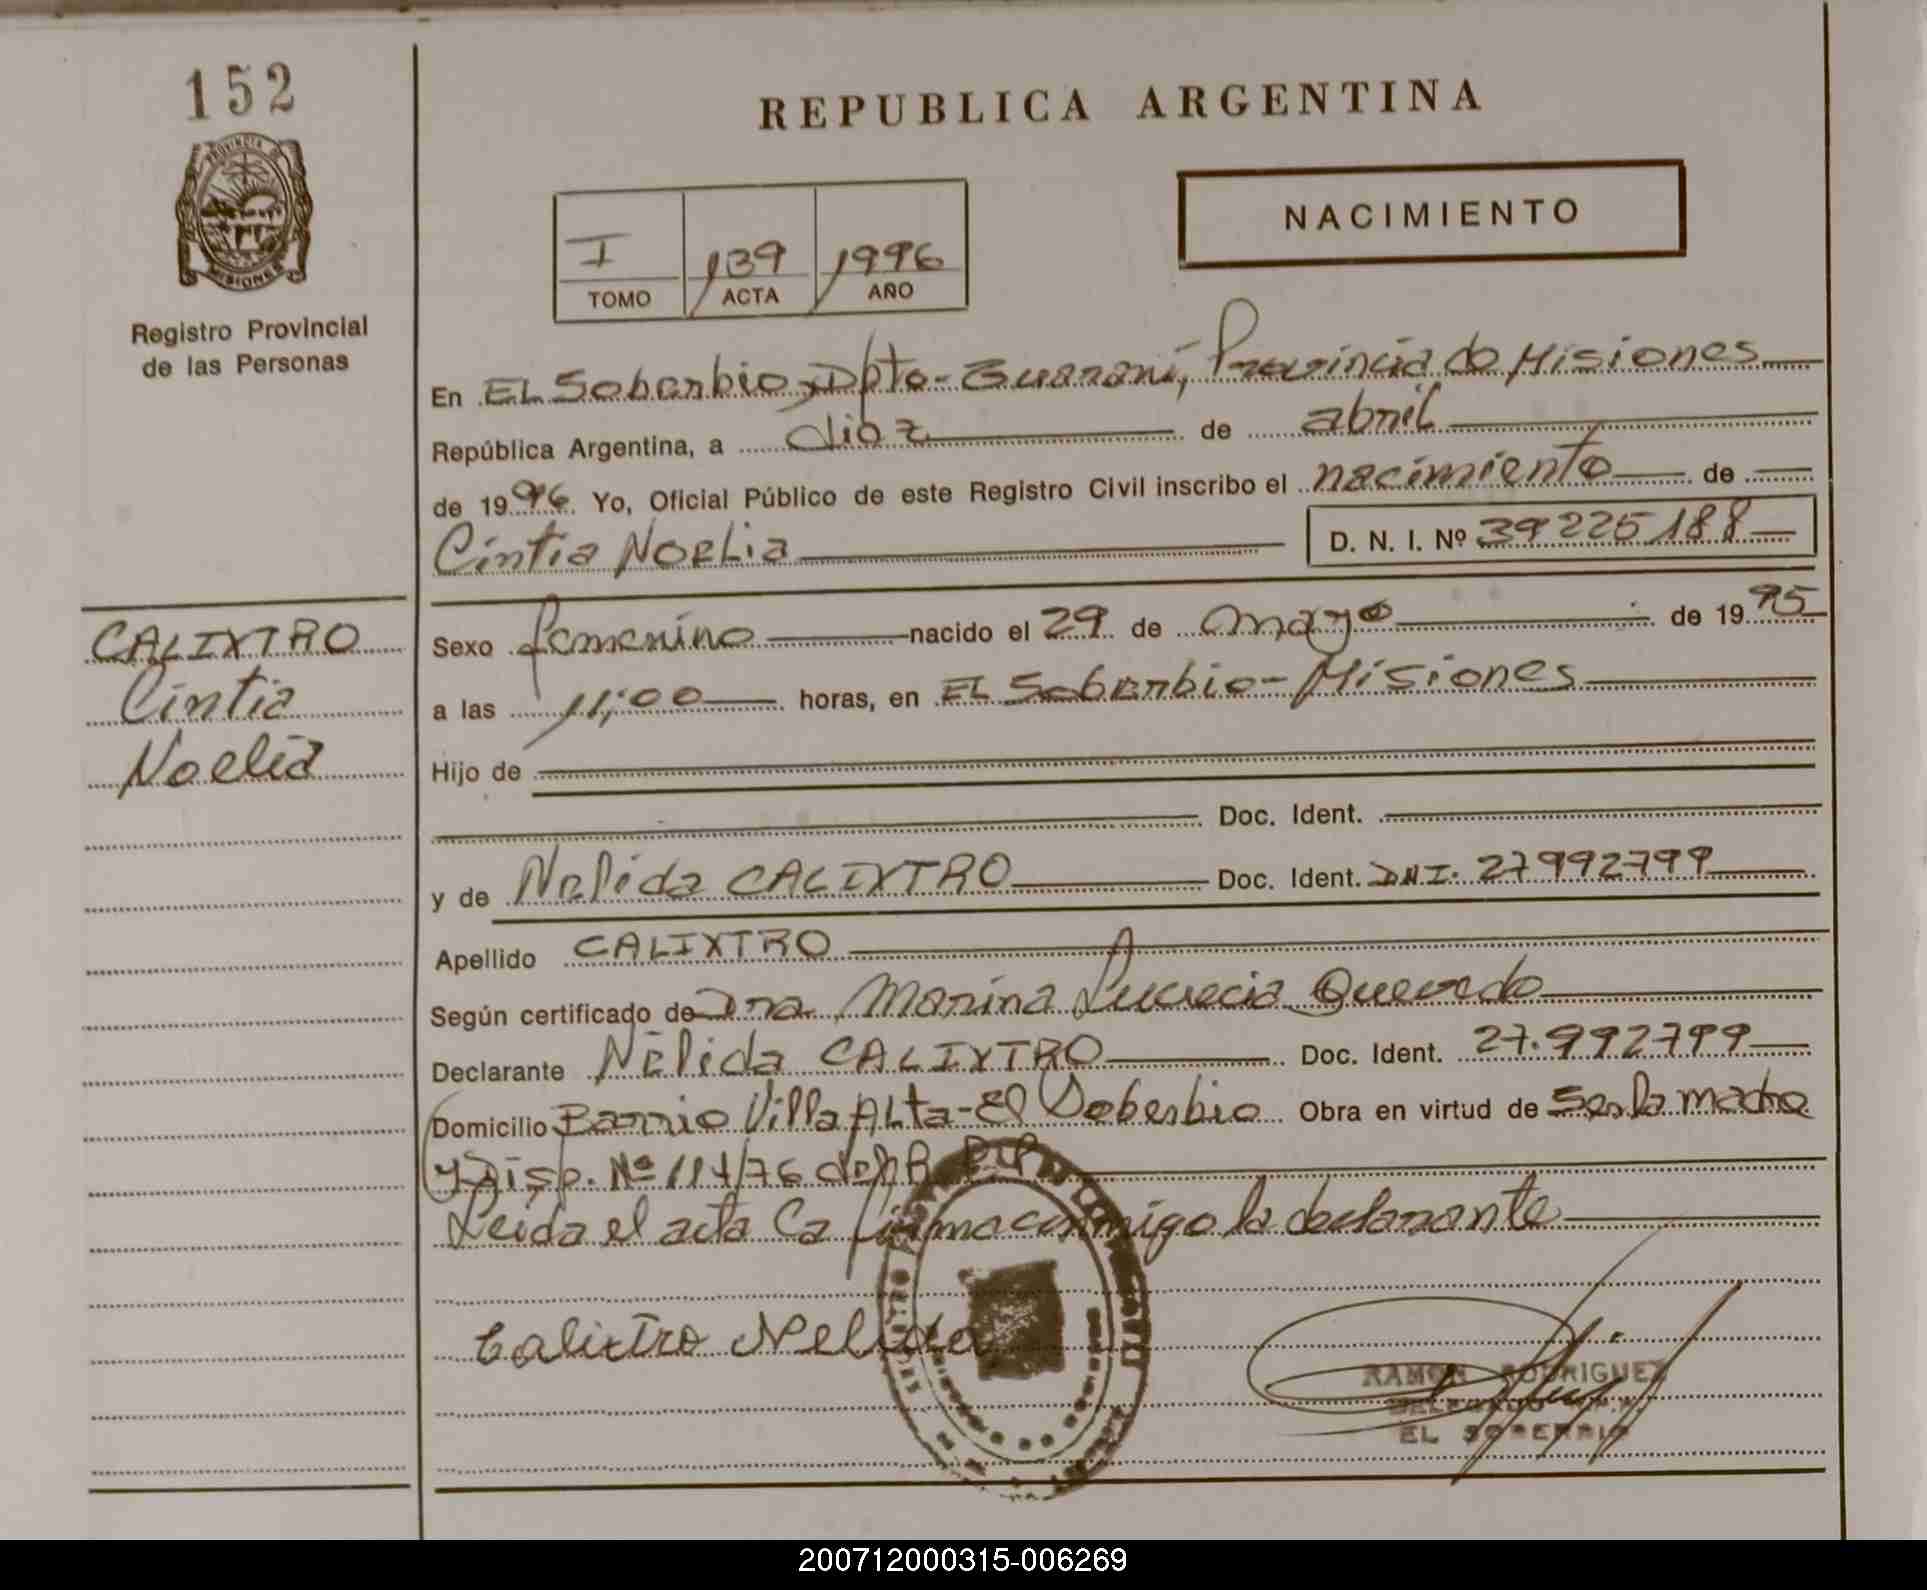 152
PROVINCIA DE
MISIONES
Registro Provincial
de las Personas
CALIXTRO
Cintia
Noelia
REPUBLICA ARGENTINA
NACIMIENTO
I 139 1996
TOMO ACTA AÑO
En EL Soberbio, Dpto- Guaraní, Provincia de Misiones
República Argentina, a diez de abril
de 1996. Yo, Oficial Público de este Registro Civil inscribo el nacimiento de
Cintia NOELia D. N. I. Nº 39225188
Sexo femenino nacido el 29 de mayo de 1995
a las 11;00 horas, en EL Soberbio- Misiones
Hijo de
Doc. Ident.
y de Nelida CALIXTRO Doc. Ident. DNI. 27992799
Apellido CALIXTRO
Según certificado de Dra. Marina Lucrecia Quevedo
Declarante Nélida CALIXTRO Doc. Ident. 27.992799
Domicilio Barrio Villa ALta- El Soberbio Obra en virtud de Ser la madre
y Disp. Nº 114/76 del R.P.P.
Leída el acta la firma conmigo la declarante
Calixtro Nelida
RAMON RODRIGUEZ
DELEGADO
EL SOBERBIO
200712000315-006269